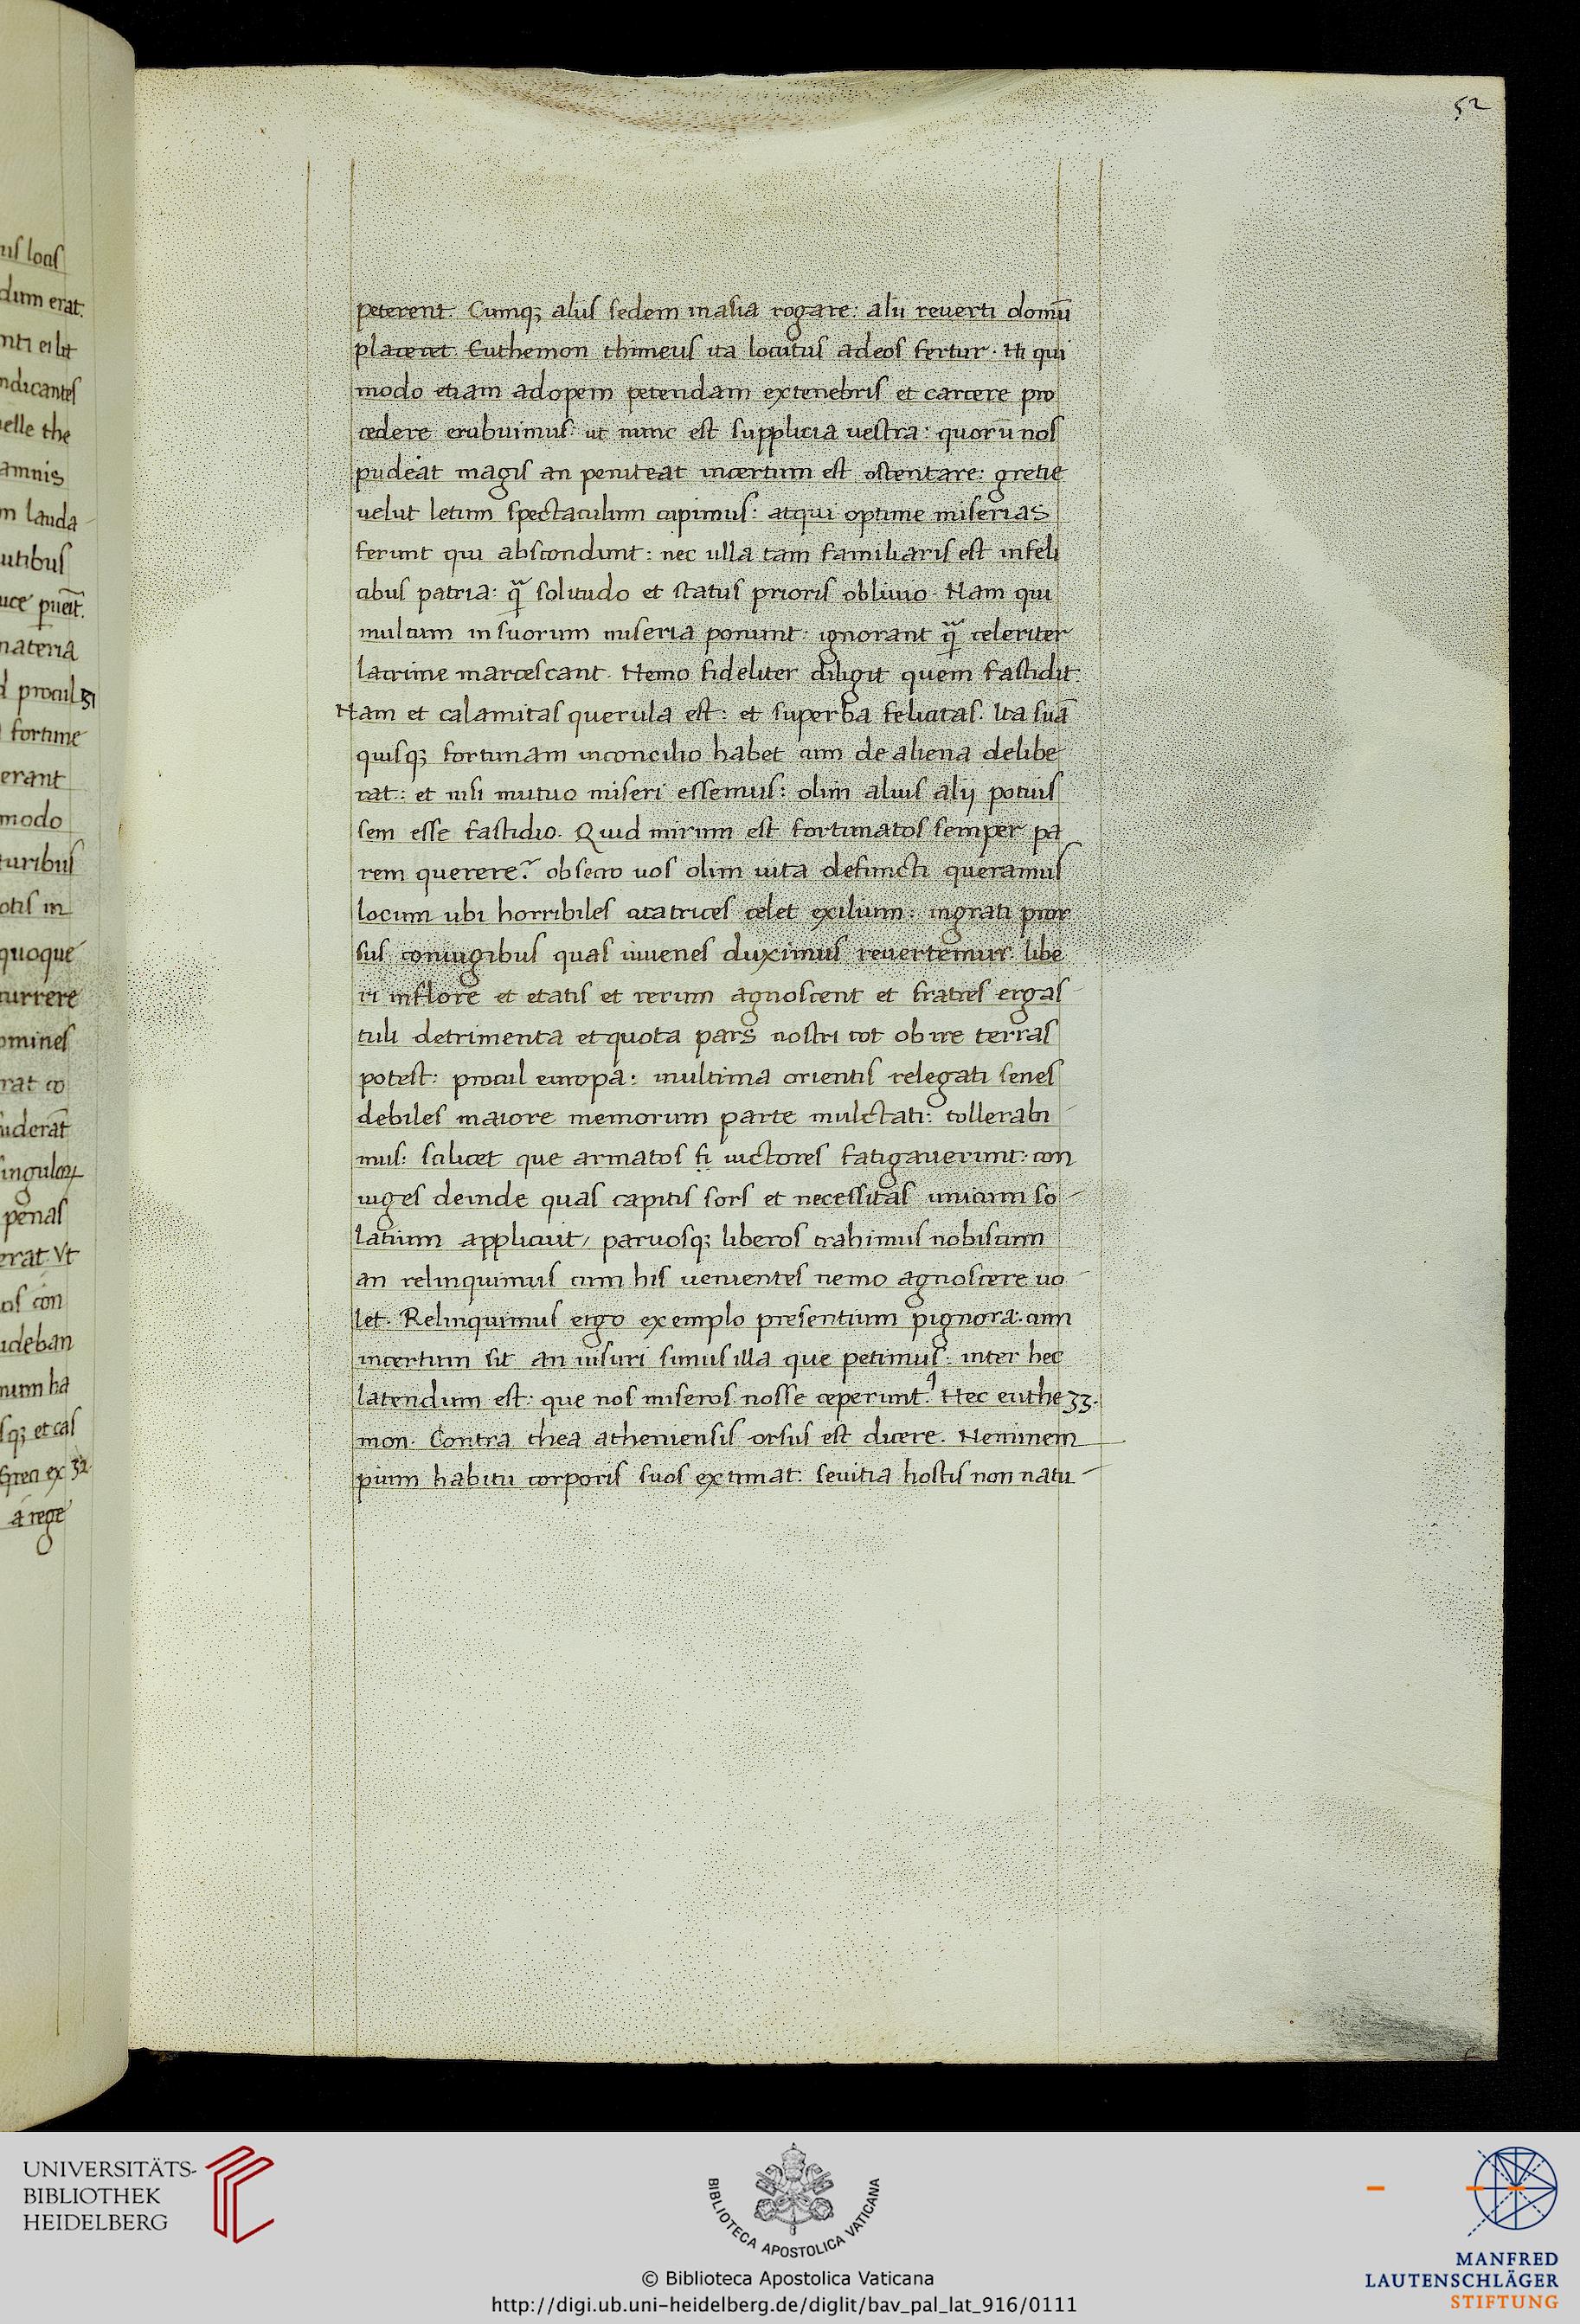 52
peterent. Cumq; aliis sedem inasia rogare: alii reuerti domū
placeret. Euthemon thimeus ita locutus adeos fertur. Hi qui
modo etiam adopem petendam extenebris et carcere pro
cedere erubuimus: ut nunc est supplicia uestra: quorū nos
pudeat magis an peniteat incertum est ostentare: gretie
uelut letum spectaculum cupimus: atqui optime miserias
ferunt qui abscondunt: nec ulla tam familiaris est infeli
cibus patria: q̄ solitudo et status prioris obliuio. Nam qui
multum insuorum miseria ponunt: ignorant q̄ celeriter
lacrime marcescant. Nemo fideliter diligit quem fastidit.
Nam et calamitas querula est: et superba felicitas. Ita suā
quisq; fortunam inconcilio habet cum de aliena delibe
rat: et nisi mutuo miseri essemus: olim aliis alij potuis
sem esse fastidio. Quid mirum est fortunatos semper pa
rem querere? obsecro uos olim uita defuncti queramus
locum ubi horribiles cicatrices celet exilium: ingrati pror
sus coniugibus quas iuuenes duximus reuertemur. libe
ri inflore et etatis et rerum agnoscent et fratres ergas
tuli detrimenta et quota pars nostri tot obire terras
potest: procul europa: inultima orientis relegati senes
debiles maiore memorum parte mulctati: tollerabi
mus: scilicet que armatos fi uictores fatigauerunt: con
iuges deinde quas capitis sors et necessitas unicum so
latium applicuit, paruosq; liberos trahimus nobiscum
an relinquimus cum his uenientes nemo agnoscere uo
let. Relinquimus ergo exemplo presentium pignora: cum
incertum sit an uisuri simus illa que petimus: inter hec
latendum est: que nos miseros nosse ceperunt. Hec euthe 33.
mon. Contra thea atheniensis orsus est dicere. Neminem
pium habitu corporis suos extimat: seuitia hostis non natu
UNIVERSITÄTS-
BIBLIOTHEK
HEIDELBERG
BIBLIOTECA APOSTOLICA VATICANA
© Biblioteca Apostolica Vaticana
http://digi.ub.uni-heidelberg.de/diglit/bav_pal_lat_916/0111
MANFRED
LAUTENSCHLÄGER
STIFTUNG